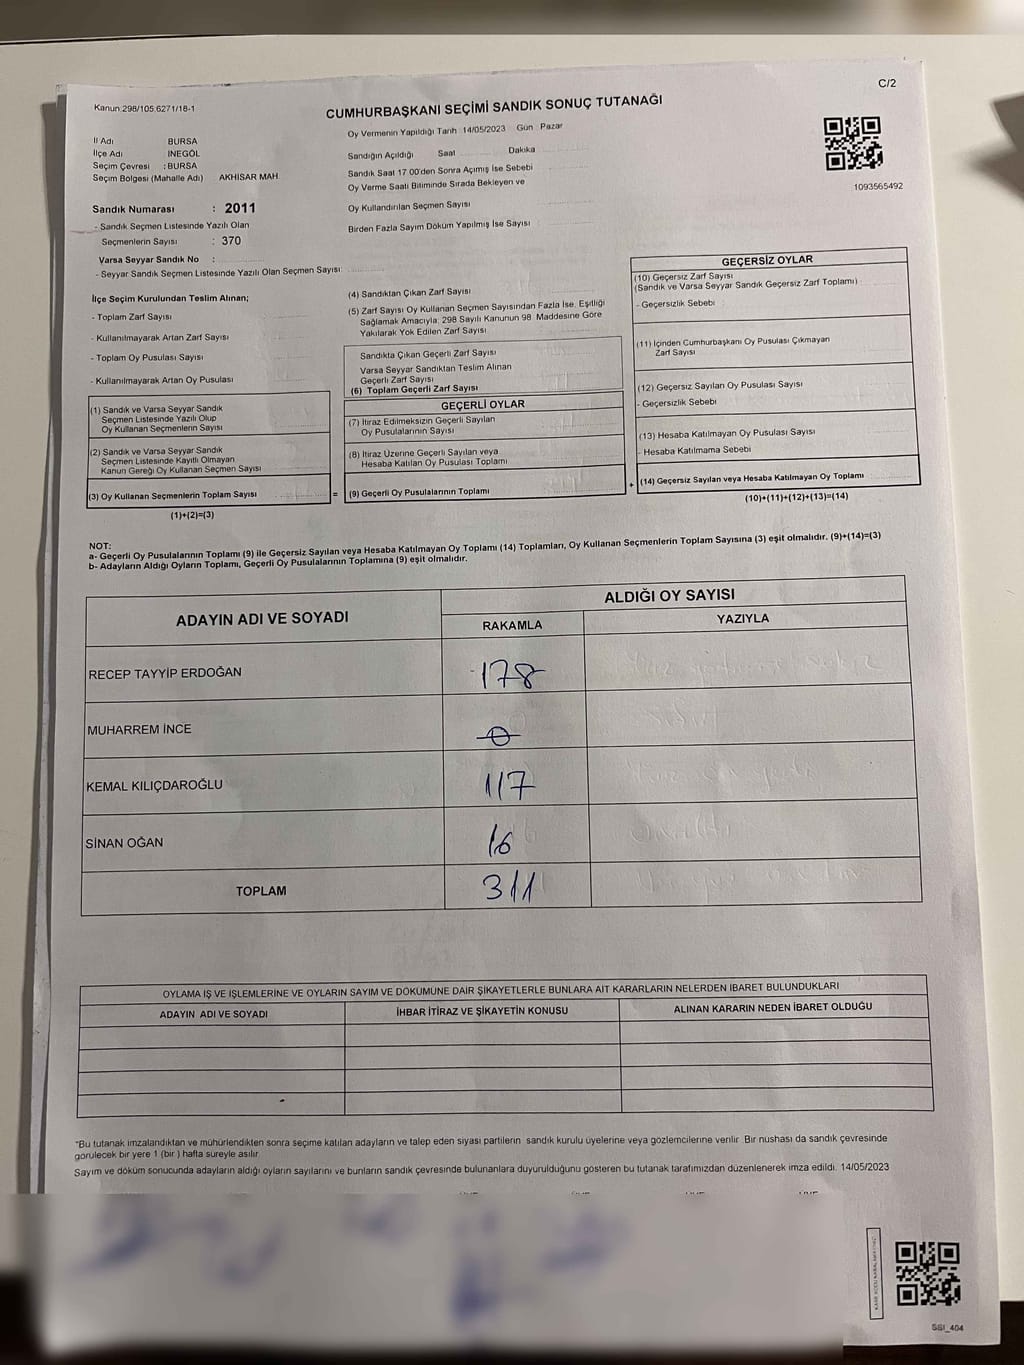 C/2
Kanun:298/105,6271/16-1
CUMHURBAŞKANI SEÇİMİ SANDIK SONUÇ TUTANAĞI
Oy Vermenin Yapıldığı Tarih 14/05/2023 Gün Pazar
İl Adı BURSA
İlçe Adı İNEGÖL
Seçim Çevresi : BURSA
Seçim Bölgesi (Mahalle Adı) AKHİSAR MAH.
Sandığın Açıldığı Saat Dakika
Sandık Saat 17 00'den Sonra Açımış İse Sebebi
Oy Verme Saati Bitiminde Sırada Bekleyen ve
Oy Kullandırılan Seçmen Sayısı
Birden Fazla Sayım Döküm Yapılmış İse Sayısı
1093565492
Sandık Numarası : 2011
- Sandık Seçmen Listesinde Yazılı Olan
Seçmenlerin Sayısı : 370
Varsa Seyyar Sandık No :
- Seyyar Sandık Seçmen Listesinde Yazılı Olan Seçmen Sayısı:
İlçe Seçim Kurulundan Teslim Alınan;
- Toplam Zarf Sayısı
- Kullanılmayarak Artan Zarf Sayısı
- Toplam Oy Pusulası Sayısı
- Kullanılmayarak Artan Oy Pusulası
(1) Sandık ve Varsa Seyyar Sandık
Seçmen Listesinde Yazılı Olup
Oy Kullanan Seçmenlerin Sayısı
(2) Sandık ve Varsa Seyyar Sandık
Seçmen Listesinde Kayıtlı Olmayan
Kanun Gereği Oy Kullanan Seçmen Sayısı
(3) Oy Kullanan Seçmenlerin Toplam Sayısı
(1)+(2)=(3)
(4) Sandıktan Çıkan Zarf Sayısı
(5) Zarf Sayısı Oy Kullanan Seçmen Sayısından Fazla İse, Eşitliği
Sağlamak Amacıyla, 298 Sayılı Kanunun 98. Maddesine Göre
Yakılarak Yok Edilen Zarf Sayısı
Sandıkta Çıkan Geçerli Zarf Sayısı
Varsa Seyyar Sandıktan Teslim Alınan
Geçerli Zarf Sayısı
(6) Toplam Geçerli Zarf Sayısı
GEÇERLİ OYLAR
(7) İtiraz Edilmeksizin Geçerli Sayılan
Oy Pusulalarının Sayısı
(8) İtiraz Üzerine Geçerli Sayılan veya
Hesaba Katılan Oy Pusulası Toplamı
= (9) Geçerli Oy Pusulalarının Toplamı
GEÇERSİZ OYLAR
(10) Geçersiz Zarf Sayısı
(Sandık ve Varsa Seyyar Sandık Geçersiz Zarf Toplamı)
- Geçersizlik Sebebi :
(11) İçinden Cumhurbaşkanı Oy Pusulası Çıkmayan
Zarf Sayısı
(12) Geçersiz Sayılan Oy Pusulası Sayısı
- Geçersizlik Sebebi
(13) Hesaba Katılmayan Oy Pusulası Sayısı
- Hesaba Katılmama Sebebi
+ (14) Geçersiz Sayılan veya Hesaba Katılmayan Oy Toplamı
(10)+(11)+(12)+(13)=(14)
NOT:
a- Geçerli Oy Pusulalarının Toplamı (9) ile Geçersiz Sayılan veya Hesaba Katılmayan Oy Toplamı (14) Toplamları, Oy Kullanan Seçmenlerin Toplam Sayısına (3) eşit olmalıdır. (9)+(14)=(3)
b- Adayların Aldığı Oyların Toplamı, Geçerli Oy Pusulalarının Toplamına (9) eşit olmalıdır.
ADAYIN ADI VE SOYADI
ALDIĞI OY SAYISI
RAKAMLA YAZIYLA
RECEP TAYYİP ERDOĞAN 178
MUHARREM İNCE 0
KEMAL KILIÇDAROĞLU 117
SİNAN OĞAN 16
TOPLAM 311
OYLAMA İŞ VE İŞLEMLERİNE VE OYLARIN SAYIM VE DÖKÜMÜNE DAİR ŞİKAYETLERLE BUNLARA AİT KARARLARIN NELERDEN İBARET BULUNDUKLARI
ADAYIN ADI VE SOYADI İHBAR İTİRAZ VE ŞİKAYETİN KONUSU ALINAN KARARIN NEDEN İBARET OLDUĞU
*Bu tutanak imzalandıktan ve mühürlendikten sonra seçime katılan adayların ve talep eden siyasi partilerin sandık kurulu üyelerine veya gözlemcilerine verilir. Bir nüshası da sandık çevresinde
görülecek bir yere 1 (bir ) hafta süreyle asılır.
Sayım ve döküm sonucunda adayların aldığı oyların sayılarını ve bunların sandık çevresinde bulunanlara duyurulduğunu gösteren bu tutanak tarafımızdan düzenlenerek imza edildi. 14/05/2023
SSI_404